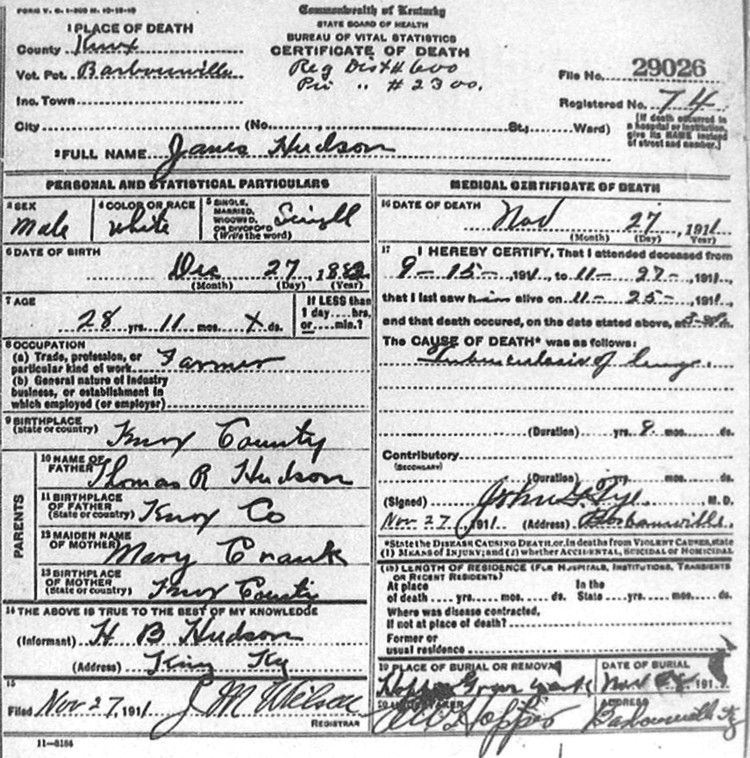 FORM V. S. 1-300 M. 10-18-10
Commonwealth of Kentucky
STATE BOARD OF HEALTH
BUREAU OF VITAL STATISTICS
CERTIFICATE OF DEATH
1 PLACE OF DEATH
County Knox
Vot. Pct. Barbourville
Reg Dist # 600
Pri " # 2300.
File No. 29026
Inc. Town
Registered No. 74
City (No. St., Ward)
[If death occurred in a hospital or institution, give its NAME instead of street and number.]
2 FULL NAME James Hudson
PERSONAL AND STATISTICAL PARTICULARS
3 SEX
Male
4 COLOR OR RACE
White
5 SINGLE, MARRIED, WIDOWED OR DIVORCED (Write the word)
6 DATE OF BIRTH
Dec 27, 1882
(Month) (Day) (Year)
7 AGE
28 yrs. 11 mos. X ds.
If LESS than 1 day....hrs. or....min.?
8 OCCUPATION
(a) Trade, profession, or particular kind of work Farmer
(b) General nature of industry business, or establishment in which employed (or employer)
9 BIRTHPLACE (State or country)
Knox County
PARENTS
10 NAME OF FATHER Thomas R Hudson
11 BIRTHPLACE OF FATHER (State or country) Knox Co
12 MAIDEN NAME OF MOTHER Mary Cronk
13 BIRTHPLACE OF MOTHER (State or country) Knox County
14 THE ABOVE IS TRUE TO THE BEST OF MY KNOWLEDGE
(Informant) H B Hudson
(Address) King Ky
15
Filed Nov 27, 1911 J M Wilson
REGISTRAR
11-8184
MEDICAL CERTIFICATE OF DEATH
16 DATE OF DEATH Nov 27, 1911
(Month) (Day) (Year)
17 I HEREBY CERTIFY, That I attended deceased from
9-15-, 1911, to 11-27-, 1911,
that I last saw him alive on 11-25-, 1911,
and that death occured, on the date stated above, at
The CAUSE OF DEATH* was as follows:
Tuberculosis of lungs
(Duration) yrs. 8 mos. ds.
Contributory (SECONDARY)
(Duration) yrs. mos. ds.
(Signed) John G. Tye M. D.
Nov 27, 1911 (Address) Barbourville
*State the DISEASE CAUSING DEATH, or, in deaths from VIOLENT CAUSES, state (1) MEANS OF INJURY; and (2) whether ACCIDENTAL, SUICIDAL or HOMICIDAL
18) LENGTH OF RESIDENCE (FOR HOSPITALS, INSTITUTIONS, TRANSIENTS OR RECENT RESIDENTS)
At place of death yrs. mos. ds. In the State yrs. mos. ds.
Where was disease contracted, if not at place of death?
Former or usual residence
19 PLACE OF BURIAL OR REMOVAL
Hopper Grave yard
DATE OF BURIAL
Nov 191
20 UNDERTAKER
Hopper
ADDRESS
Barbourville Ky